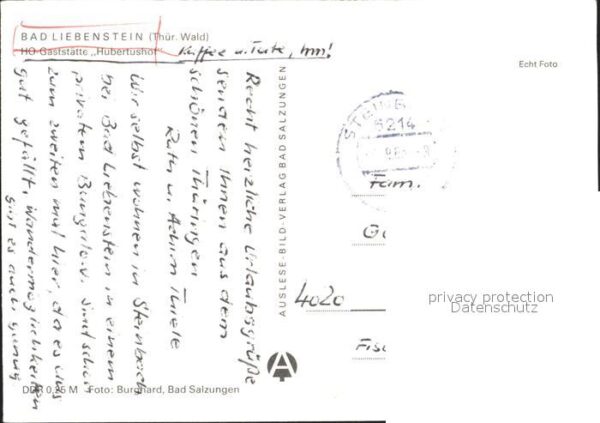 BAD LIEBENSTEIN (Thür. Wald)
HO-Gaststätte „Hubertushof"
Kaffee u. Torte, hm!
Echt Foto
Recht herzliche Urlaubsgrüße
senden Ihnen aus dem
schönen Thüringen
Ruth u. Achim Thiele
Wir selbst wohnen in Steinbach
bei Bad Liebenstein in einem
privatem Bungalow. Sind schon
zum zweiten mal hier, da es uns
gut gefällt. Wandermöglichkeiten
gibt es auch genug
AUSLESE-BILD-VERLAG BAD SALZUNGEN
STEINB
6214
Fam.
4020
privacy protection
Datenschutz
DDR 0,25 M Foto: Burghard, Bad Salzungen